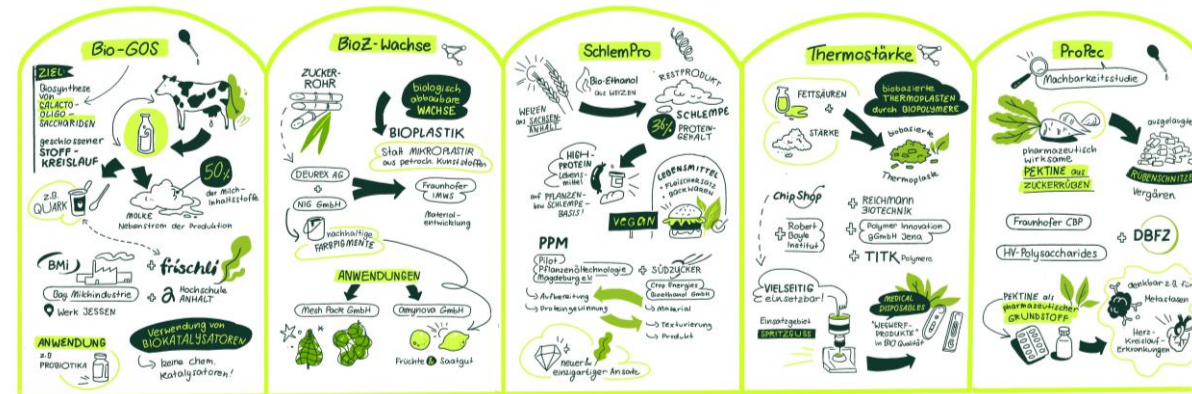 Bio-GOS
ZIEL
Biosynthese
von
GALACTO-
OLIGO-
SACCHARIDEN
geschlossener
STOFF-
KREISLAUF
50%
der Milch-
inhaltsstoffe
z.B.
QUARK
MOLKE
Nebenstrom der Produktion
BMi
+ frischli
Bay. Milchindustrie
+ a Hochschule
ANHALT
Werk JESSEN
ANWENDUNG
z.B
PROBIOTIKA
Verwendung von
BIOKATALYSATOREN
↳ keine chem.
Katalysatoren!
BioZ-Wachse
ZUCKER-
ROHR
biologisch
abbaubare
WACHSE
BIOPLASTIK
Statt MIKROPLASTIK
aus petroch. Kunststoffen
DEUREX AG
+
NIG GmbH
Fraunhofer
IMWS
Material-
entwicklung
nachhaltige
FARBPIGMENTE
ANWENDUNGEN
Mesh Pack GmbH
Amynova GmbH
Früchte & Saatgut
SchlemPro
Bio-Ethanol
aus WEIZEN
RESTPRODUKT
WEIZEN
aus SACHSEN-
ANHALT
36%
SCHLEMPE
PROTEIN-
GEHALT
HIGH-
PROTEIN
Lebens-
mittel
auf PFLANZEN-
bzw SCHLEMPE-
BASIS!
LEBENSMITTEL
• FLEISCHERSATZ
• BACKWAREN
vegan
PPM
Pilot
Pflanzenöltechnologie
Magdeburg e.V.
+ SÜDZUCKER
Crop Energies
Bioethanol GmbH
→ Aufbereitung
→ Proteingewinnung
→ Material
→ Texturierung
→ Produkt
neuer &
einzigartiger Ansatz
Thermostärke
FETTSÄUREN
+
STÄRKE
biobasierte
THERMOPLASTEN
durch BIOPOLYMERE
biobasierte
Thermoplaste
ChipShop
+ REICHMANN
BIOTECHNIK
+ Robert
Boyle
Institut
+ Polymer Innovation
gGmbH Jena
+ TITK Polymere
VIELSEITIG
einsetzbar!
Einsatzgebiet
SPRITZGUSS
MEDICAL
DISPOSABLES
"WEGWERF-
PRODUKTE"
in BIO Qualität
ProPec
Machbarkeitsstudie
ausgelaugte
RÜBENSCHNITZEL
Vergären
pharmazeutisch
wirksame
PEKTINE aus
ZUCKERRÜBEN
Fraunhofer CBP
+ DBFZ
HV-Polysaccharides
PEKTINE als
pharmazeutischer
GRUNDSTOFF
denkbar z.B. für
Metastasen
Herz-
Kreislauf-
Erkrankungen